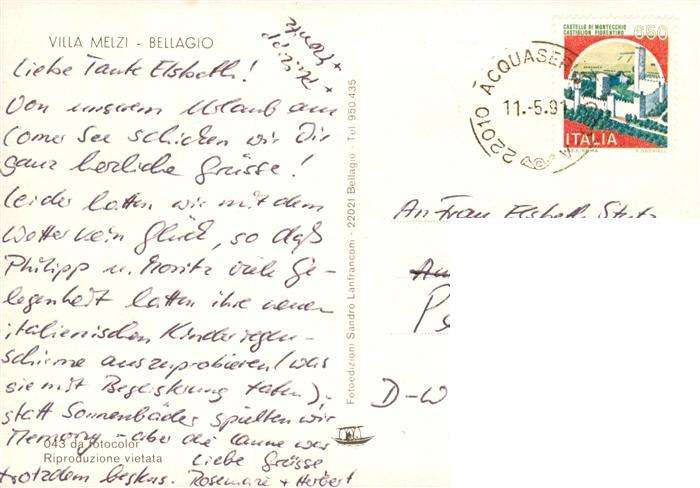 VILLA MELZI - BELLAGIO
Liebe Tante Elsbeth!
Von unserem Urlaub am
Comer See schicken wir Dir
ganz herzliche Grüsse!
Leider hatten wir mit dem
Wetter kein Glück, so daß
Philipp u. Moritz viele Ge-
legenheit hatten ihre neuen
italienischen Kinderregen-
schirme auszuprobieren (was
sie mit Begeisterung taten),
statt Sonnenbäder spielten wir
Memory - aber die Laune war
trotzdem bestens. Liebe Grüsse
Rosemarie + Herbert
+ Philipp
+ Moritz
043 da fotocolor
Riproduzione vietata
Fotoedizioni Sandro Lanfranconi - 22021 Bellagio - Tel. 950.435
CASTELLO DI MONTECCHIO
CASTIGLION FIORENTINO
650
ITALIA
22010 ACQUASER
11.-5.91
An Frau Elsbeth
D-W